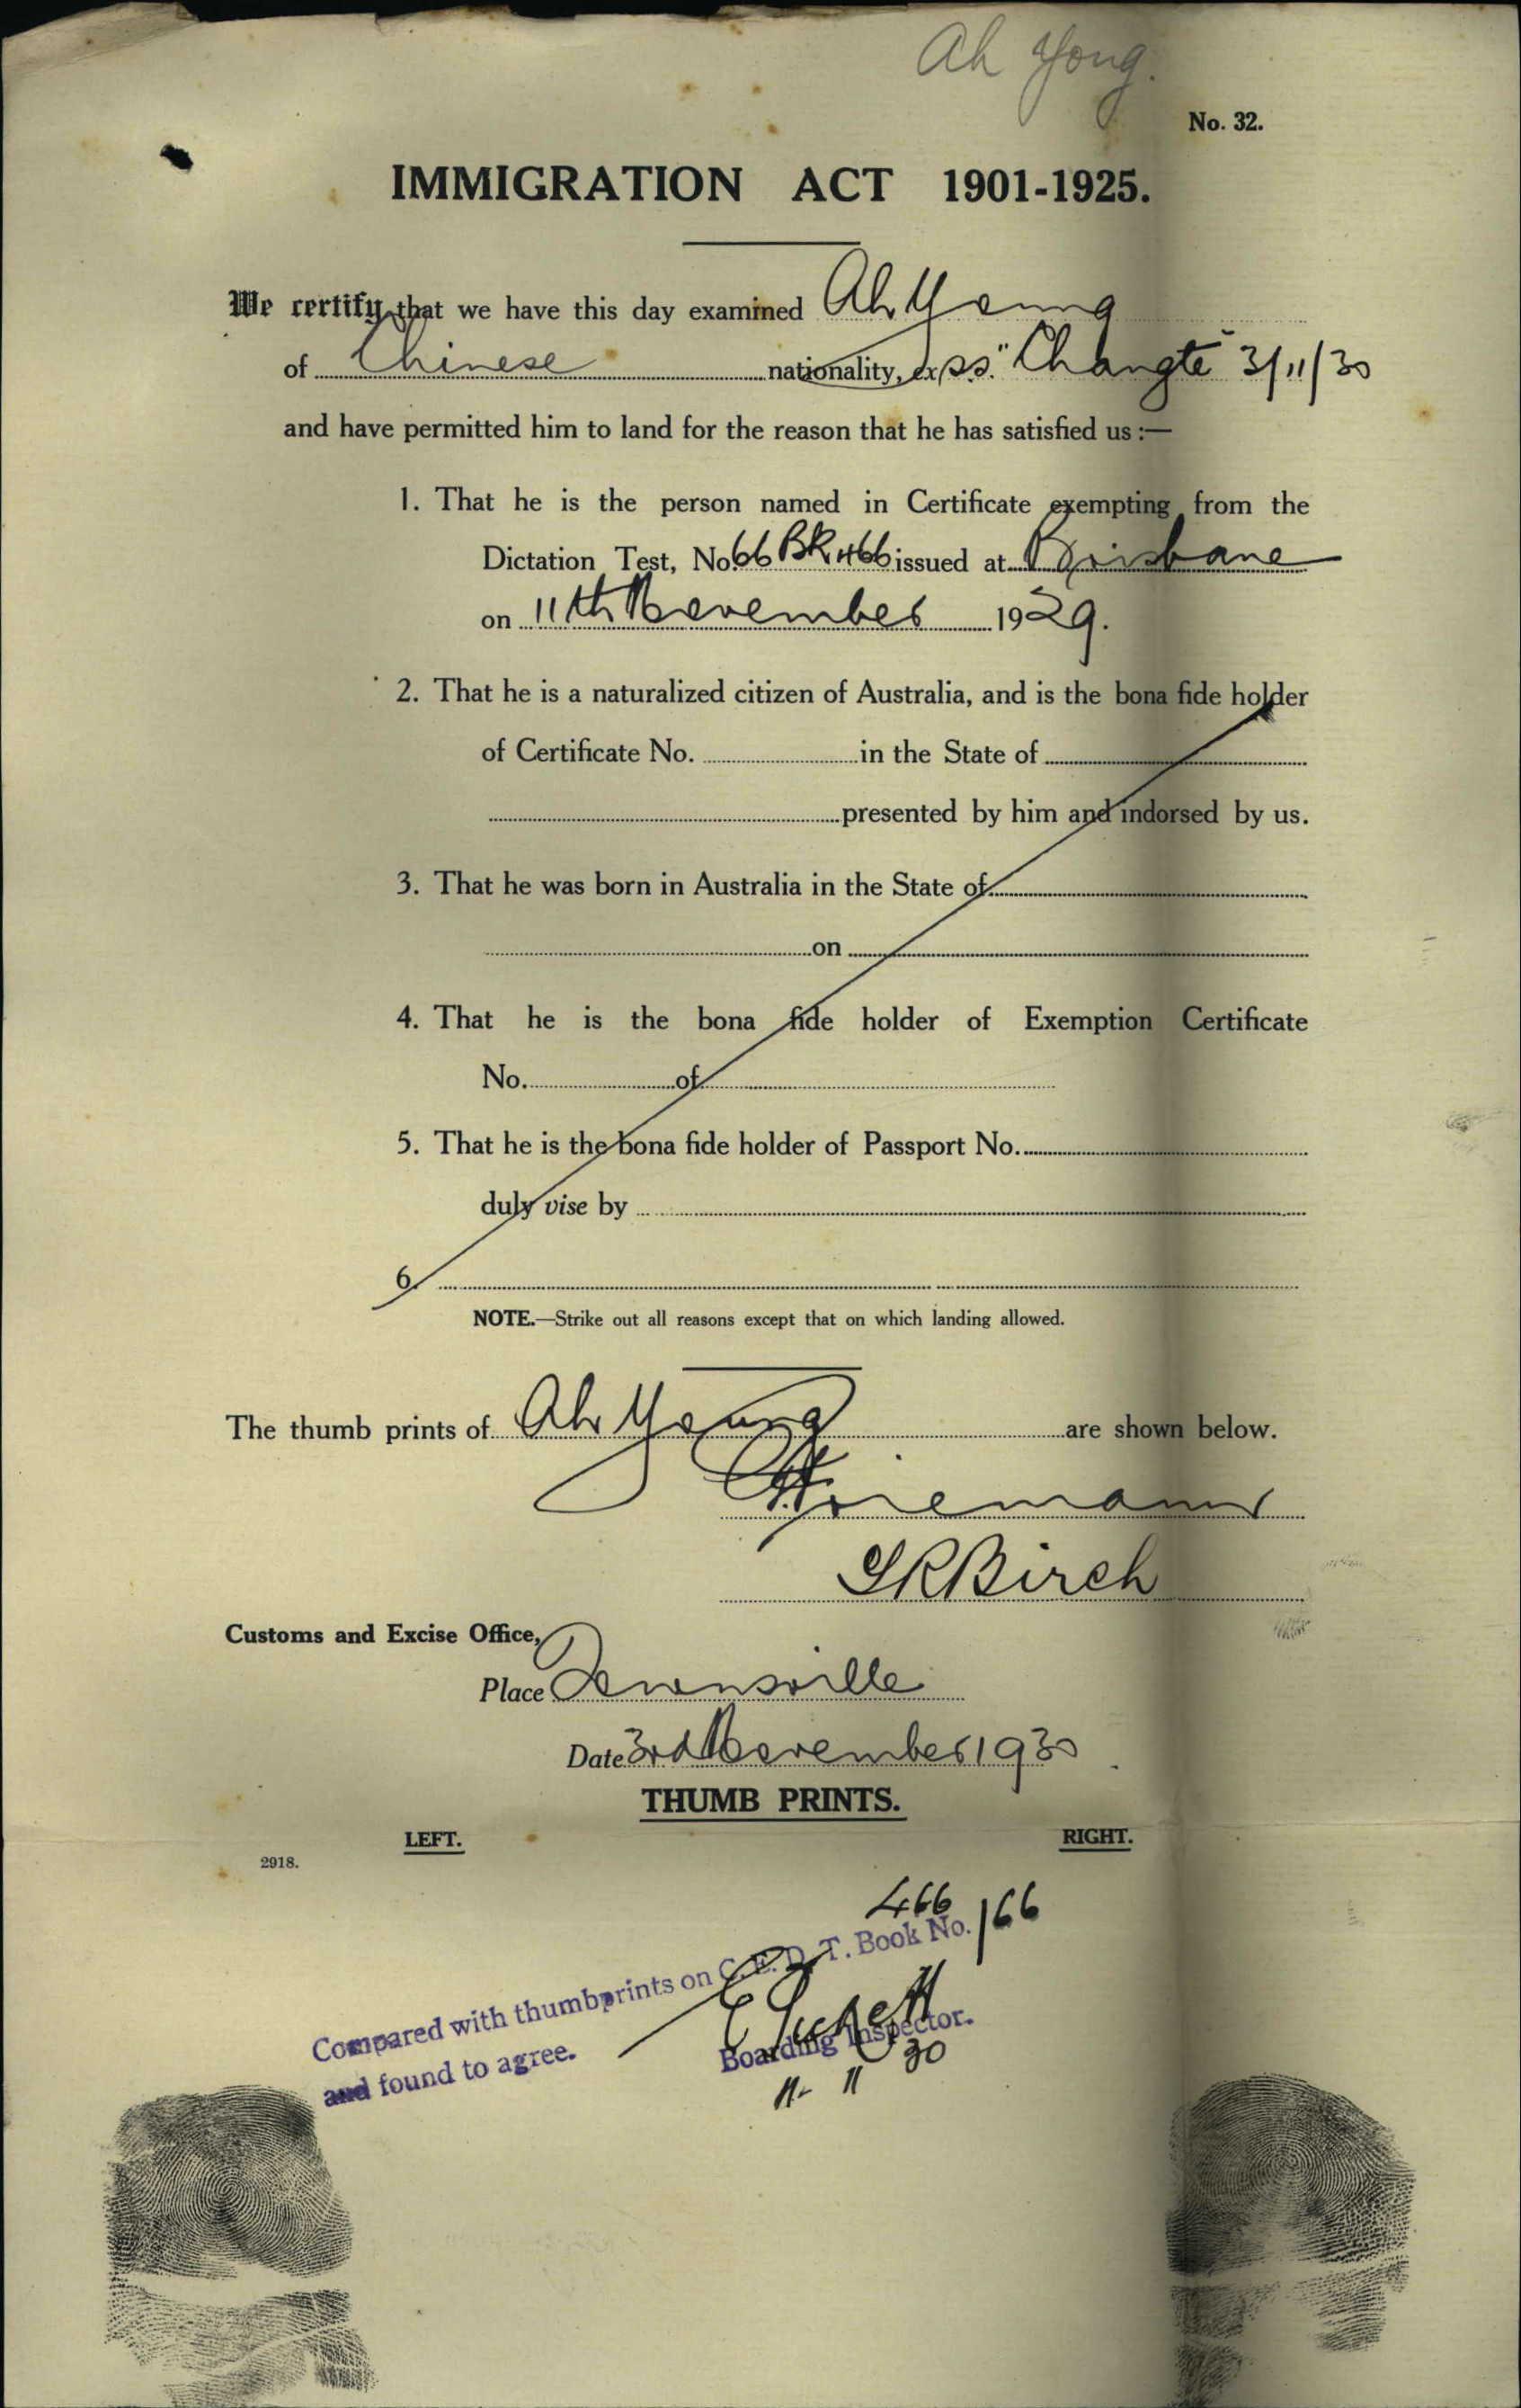 Ah Yong.
No. 32.
IMMIGRATION ACT 1901-1925.
We certify that we have this day examined Ah Young
of Chinese nationality, ex s.s. "Changte" 3/11/30
and have permitted him to land for the reason that he has satisfied us :—
1. That he is the person named in Certificate exempting from the
Dictation Test, No. 66 BK 466 issued at Brisbane
on 11th November 1929.
2. That he is a naturalized citizen of Australia, and is the bona fide holder
of Certificate No. in the State of
presented by him and indorsed by us.
3. That he was born in Australia in the State of
on
4. That he is the bona fide holder of Exemption Certificate
No. of
5. That he is the bona fide holder of Passport No.
duly vise by
6.
NOTE.—Strike out all reasons except that on which landing allowed.
The thumb prints of Ah Young are shown below.
Birch
Customs and Excise Office,
Place Townsville
Date 3rd November 1930
THUMB PRINTS.
LEFT. RIGHT.
2918.
466/66
Compared with thumbprints on C.E.D.T. Book No.
and found to agree.
Boarding Inspector.
11- 11 30